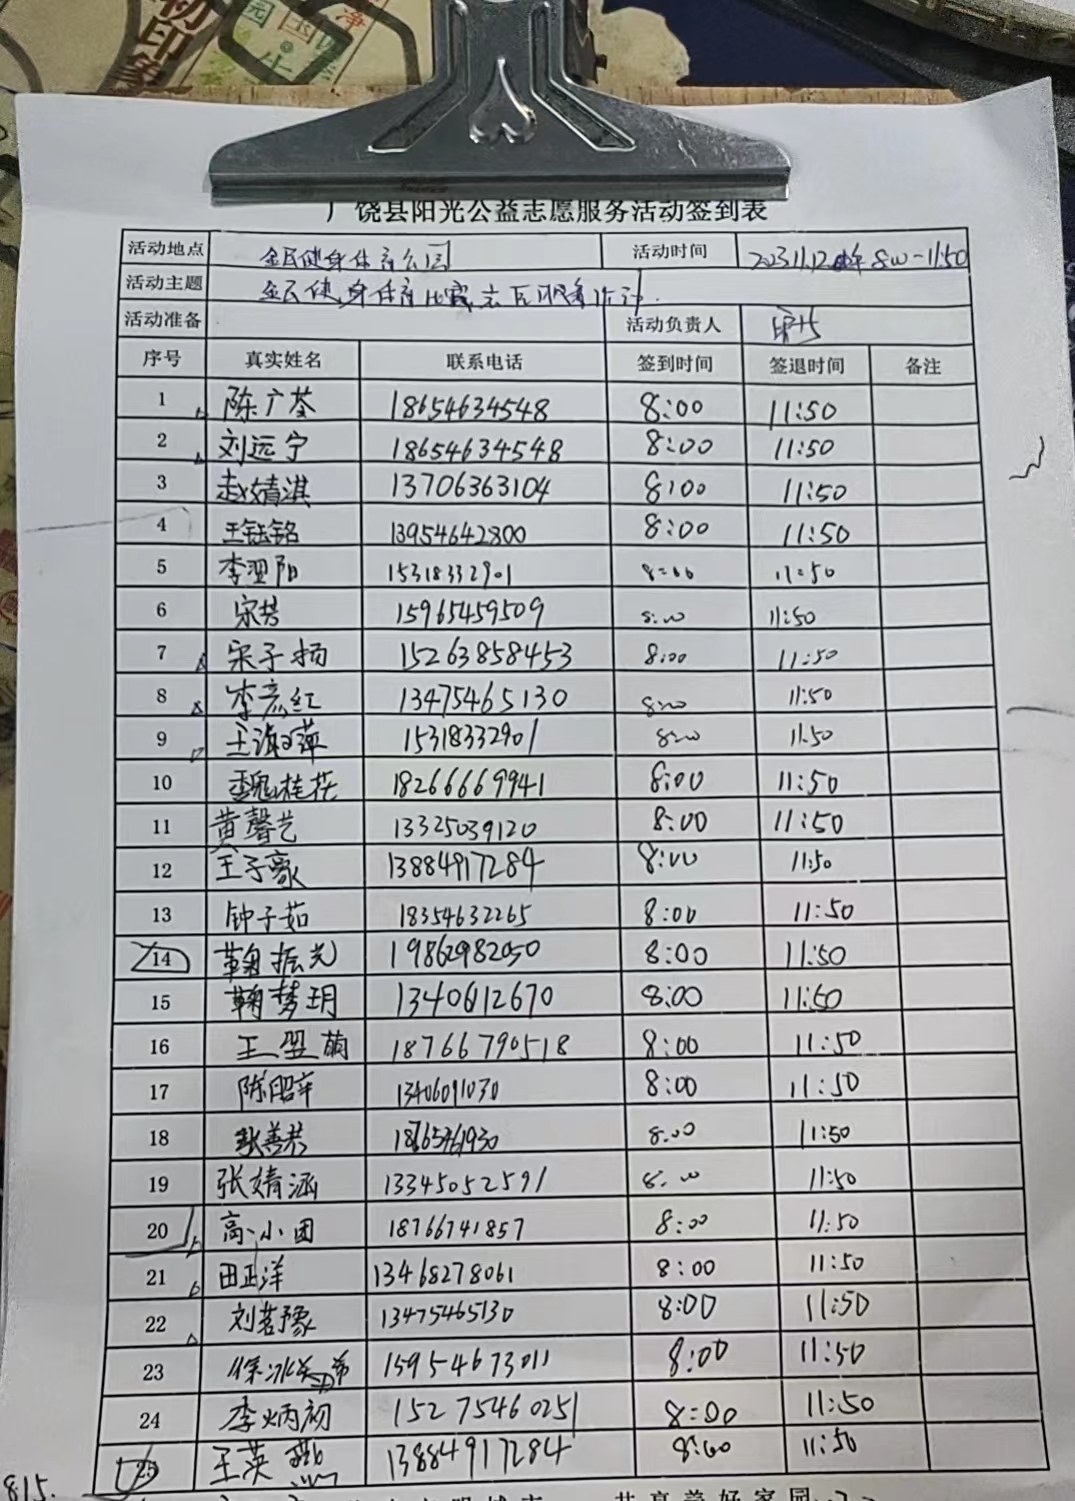 初印象
园 国 津
广饶县阳光公益志愿服务活动签到表
活动地点 全民健身体育公园 活动时间 2023.11.12 8:00-11:50
活动主题 全民健身体育比赛志愿服务活动.
活动准备 活动负责人
序号 真实姓名 联系电话 签到时间 签退时间 备注
1 陈广荃 18654634548 8:00 11:50
2 刘远宁 18654634548 8:00 11:50
3 赵婧淇 13706363104 8:00 11:50
4 王钰铭 13954642800 8:00 11:50
5 李翌阳 15318332901 8:00 11:50
6 宋芸 15965459509 8:00 11:50
7 宋子扬 15263858453 8:00 11:50
8 李彦红 13475465130 8:00 11:50
9 王海萍 15318332901 8:00 11:50
10 魏桂花 18266669941 8:00 11:50
11 黄馨艺 13325039120 8:00 11:50
12 王子豪 13884917284 8:00 11:50
13 钟子茹 18354632265 8:00 11:50
14 鞠振光 19862982050 8:00 11:50
15 鞠梦玥 13406112670 8:00 11:50
16 王翌萌 18766790518 8:00 11:50
17 陈昭辛 13406091030 8:00 11:50
18 善 8:00 11:50
19 张婧涵 13345052591 8:00 11:50
20 高小团 18766741857 8:00 11:50
21 田正洋 13468278061 8:00 11:50
22 刘茗豫 13475465130 8:00 11:50
23 徐冰 15954673011 8:00 11:50
24 李炳初 15275460251 8:00 11:50
25 王英燕 13884917284 8:00 11:50
815.
共享美好家园